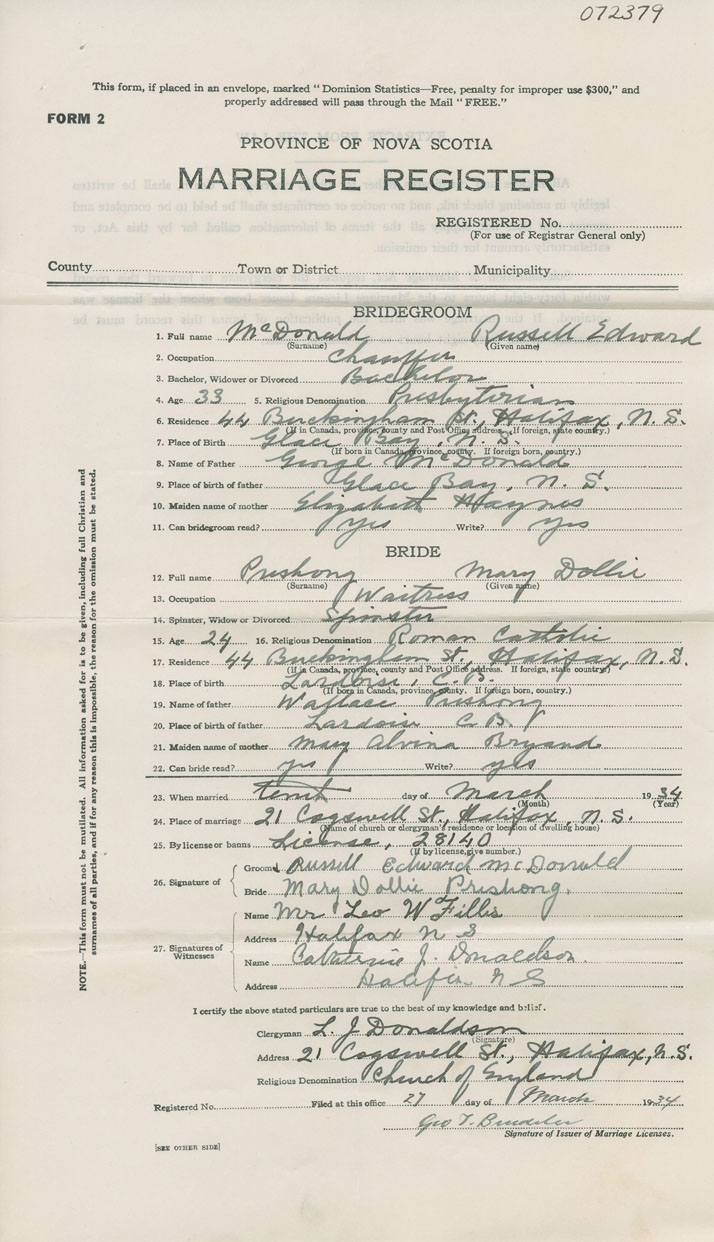 072379
This form, if placed in an envelope, marked "Dominion Statistics—Free, penalty for improper use $300," and
properly addressed will pass through the Mail "FREE."
FORM 2
PROVINCE OF NOVA SCOTIA
MARRIAGE REGISTER
REGISTERED No.
(For use of Registrar General only)
County Town or District Municipality
BRIDEGROOM
1. Full name McDonald Russell Edward
(Surname) (Given name)
2. Occupation Chauffer
3. Bachelor, Widower or Divorced Bachelor
4. Age 33 5. Religious Denomination Presbyterian
6. Residence 44 Buckingham St., Halifax, N. S.
(If in Canada, province, county and Post Office address. If foreign, state country.)
7. Place of Birth Glace Bay, N. S.
(If born in Canada, province, county. If foreign born, country.)
8. Name of Father George McDonald
9. Place of birth of father Glace Bay, N. S.
10. Maiden name of mother Elizabeth Haynes
11. Can bridegroom read? yes Write? yes
BRIDE
12. Full name Prishong Mary Dollie
(Surname) (Given name)
13. Occupation Waitress
14. Spinster, Widow or Divorced Spinster
15. Age 24 16. Religious Denomination Roman Catholic
17. Residence 44 Buckingham St, Halifax, N. S.
(If in Canada, province, county and Post Office address. If foreign, state country)
18. Place of birth Lardoise, C. B.
(If born in Canada, province, county. If foreign born, country.)
19. Name of father Wallace Prishong
20. Place of birth of father Lardoise C. B.
21. Maiden name of mother Mary Alvina Bryand
22. Can bride read? yes Write? yes
23. When married tenth day of March 1934
(Month) (Year)
24. Place of marriage 21 Cogswell St., Halifax, N. S.
(Name of church or clergyman's residence or location of dwelling house)
25. By license or banns License, 28140
(If by license, give number.)
26. Signature of
Groom Russell Edward McDonald
Bride Mary Dollie Prishong.
27. Signatures of Witnesses
Name Mr Leo W Fillis
Address Halifax N S
Name Catherine J. Donaldson.
Address Halifax N S
I certify the above stated particulars are true to the best of my knowledge and belief.
Clergyman L. J Donaldson
(Signature)
Address 21 Cogswell St., Halifax, N. S.
Religious Denomination Church of England
Registered No. Filed at this office 27 day of March 1934
Geo T.
Signature of Issuer of Marriage Licenses.
[SEE OTHER SIDE]
NOTE.—This form must not be mutilated. All information asked for is to be given, including full Christian and
surnames of all parties, and if for any reason this is impossible, the reason for the omission must be stated.